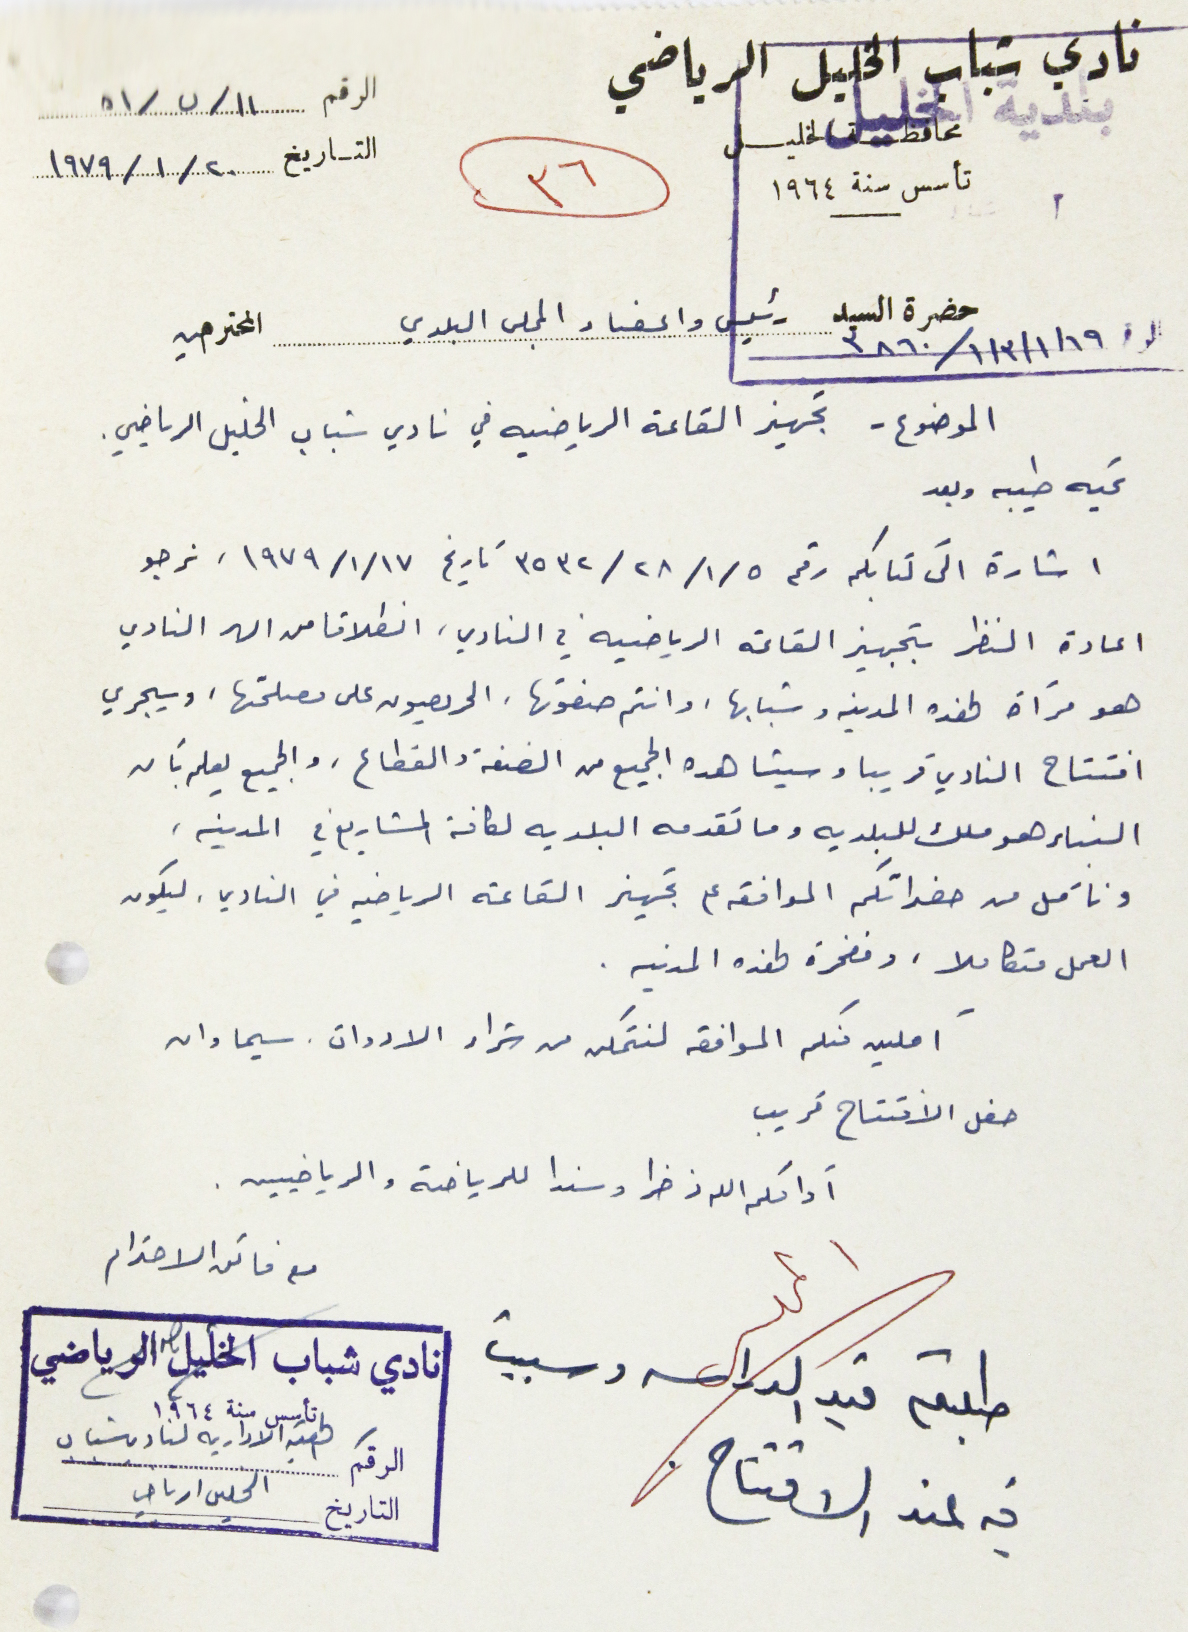 نادي شباب الخليل الرياضي
بلدية الخليل
محافظة الخليل
تأسس سنة ١٩٦٤
الرقم ١١/ ٥١/
التاريخ ٢٠/ ١/ ١٩٧٩
٣٦
حضرة السيد رئيس واعضاء المجلس البلدي المحترمين
٣٨٦٠/١/٣/١/١٩
الموضوع - تجهيز القاعة الرياضيه في نادي شباب الخليل الرياضي.
تحيه طيبه وبعد
اشارة الى كتابكم رقم ٣٥٣٢/٢٨/١/٥ تاريخ ١٩٧٩/١/١٧، نرجو
اعادة النظر بتجهيز القاعة الرياضيه في النادي، انطلاقا من ان النادي
هو مرآة لهذه المدينه وشبابها، وانتم صفوتها، الحريصون على مصلحتها، وسيجري
افتتاح النادي قريبا وسيشاهده الجميع من الضفة والقطاع، والجميع يعلم بأن
البناء هو ملك للبلديه وما تقدمه البلديه لكافة المشاريع في المدينه،
ونأمل من حضراتكم الموافقه على تجهيز القاعة الرياضيه في النادي، ليكون
العمل متكاملا، ومفخرة لهذه المدينه.
آملين منكم الموافقه لنتمكن من شراء الادوات، سيما وان
حفل الافتتاح قريب
أدامكم الله ذخرا وسندا للرياضة والرياضيين.
مع فائق الاحترام
نادي شباب الخليل الرياضي
تأسس سنة ١٩٦٤
الهيئة الادارية لنادي شباب
الرقم
الخليل الرياضي
التاريخ
طلبكم قيد الدراسه وسيبت
فيه عند الافتتاح.